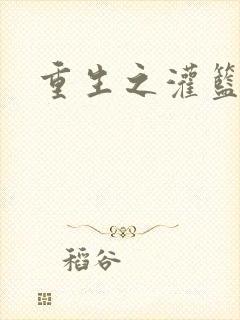 重生之灌籃
稻谷